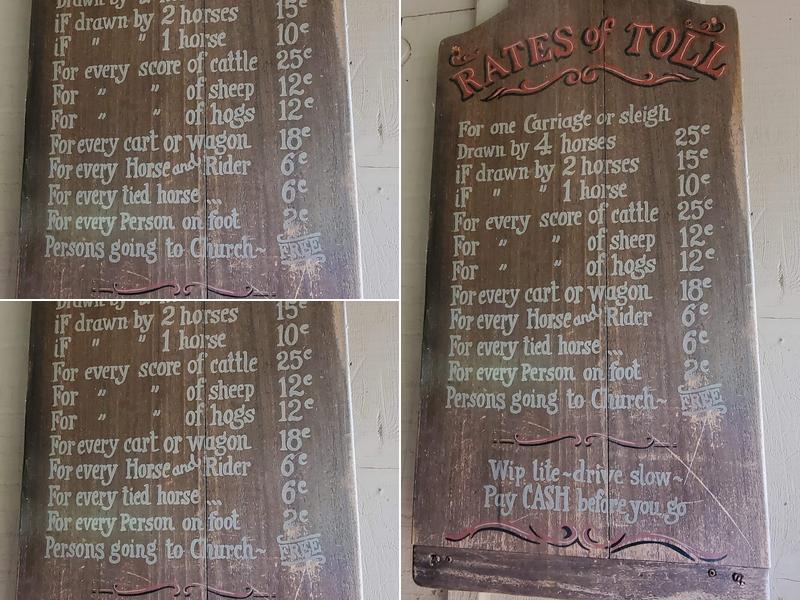 Drawn by
iF drawn by 2 horses 15¢
iF " " 1 horse 10¢
For every score of cattle 25¢
For " " of sheep 12¢
For " " of hogs 12¢
For every cart or wagon 18¢
For every Horse and Rider 6¢
For every tied horse ... 6¢
For every Person on foot 2¢
Persons going to Church~ FREE
iF drawn by 2 horses 15¢
iF " " 1 horse 10¢
For every score of cattle 25¢
For " " of sheep 12¢
For " " of hogs 12¢
For every cart or wagon 18¢
For every Horse and Rider 6¢
For every tied horse ... 6¢
For every Person on foot 2¢
Persons going to Church~ FREE
RATES of TOLL
For one Carriage or sleigh
Drawn by 4 horses 25¢
iF drawn by 2 horses 15¢
iF " " 1 horse 10¢
For every score of cattle 25¢
For " " of sheep 12¢
For " " of hogs 12¢
For every cart or wagon 18¢
For every Horse and Rider 6¢
For every tied horse ... 6¢
For every Person on foot 2¢
Persons going to Church~ FREE
Wip lite~drive slow~
Pay CASH before you go